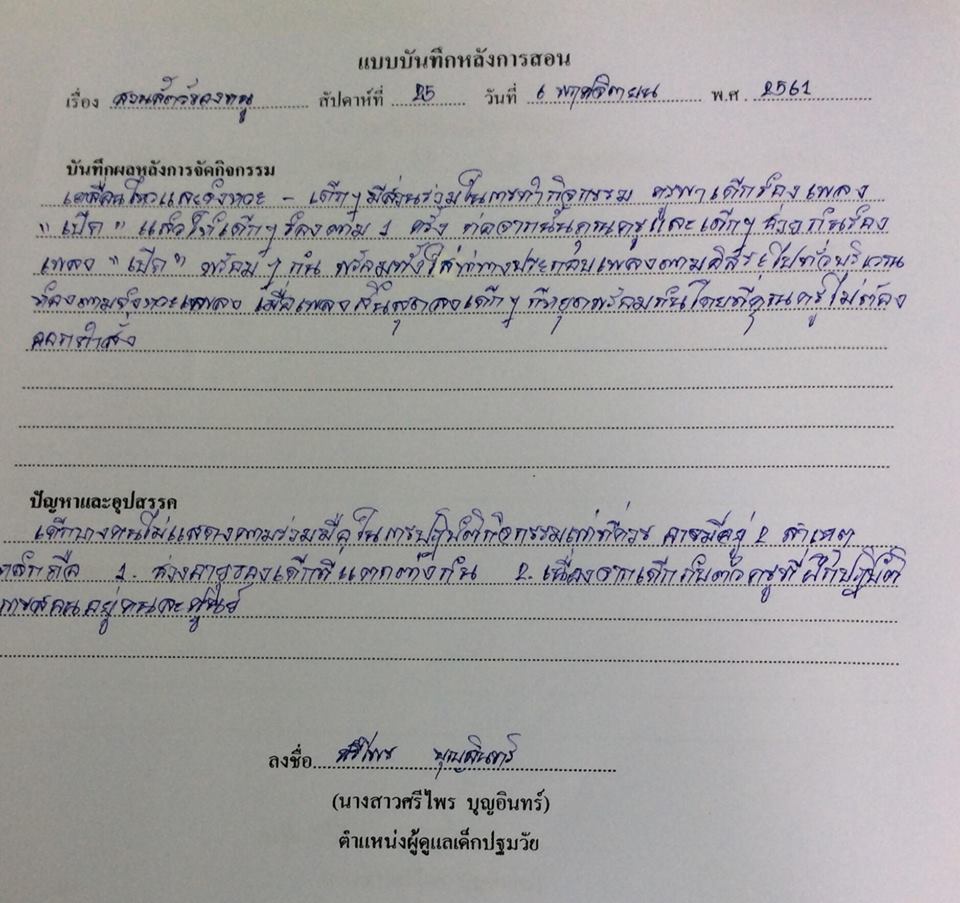 แบบบันทึกหลังการสอน
เรื่อง สวนสัตว์ของหนู สัปดาห์ที่ 25 วันที่ 6 พฤศจิกายน พ.ศ. 2561
บันทึกผลหลังการจัดกิจกรรม
เคลื่อนไหวและจังหวะ - เด็กๆ มีส่วนร่วมในการทำกิจกรรม ครูพาเด็กร้องเพลง
"เป็ด" แล้วให้เด็กๆ ร้องตาม 1 ครั้ง ต่อจากนั้นคุณครูและเด็กๆ ช่วยกันร้อง
เพลง "เป็ด" พร้อมๆ กัน พร้อมทั้งใส่ท่าทางประกอบเพลงตามอิสระไปทั่วบริเวณ
ห้องตามจังหวะเพลง เมื่อเพลงสิ้นสุดลงเด็กๆ ก็หยุดพร้อมกันโดยที่คุณครูไม่ต้อง
ออกคำสั่ง
ปัญหาและอุปสรรค
เด็กบางคนไม่แสดงความร่วมมือในการปฏิบัติกิจกรรมเท่าที่ควร อาจมีอยู่ 2 สาเหตุ
หลักคือ 1. ช่วงอายุของเด็กที่แตกต่างกัน 2. เนื่องจากเด็กกับตัวครูที่ฝึกปฏิบัติ
การสอนอยู่คนละศูนย์
ลงชื่อ ศรีไพร บุญอินทร์
(นางสาวศรีไพร บุญอินทร์)
ตำแหน่งผู้ดูแลเด็กปฐมวัย